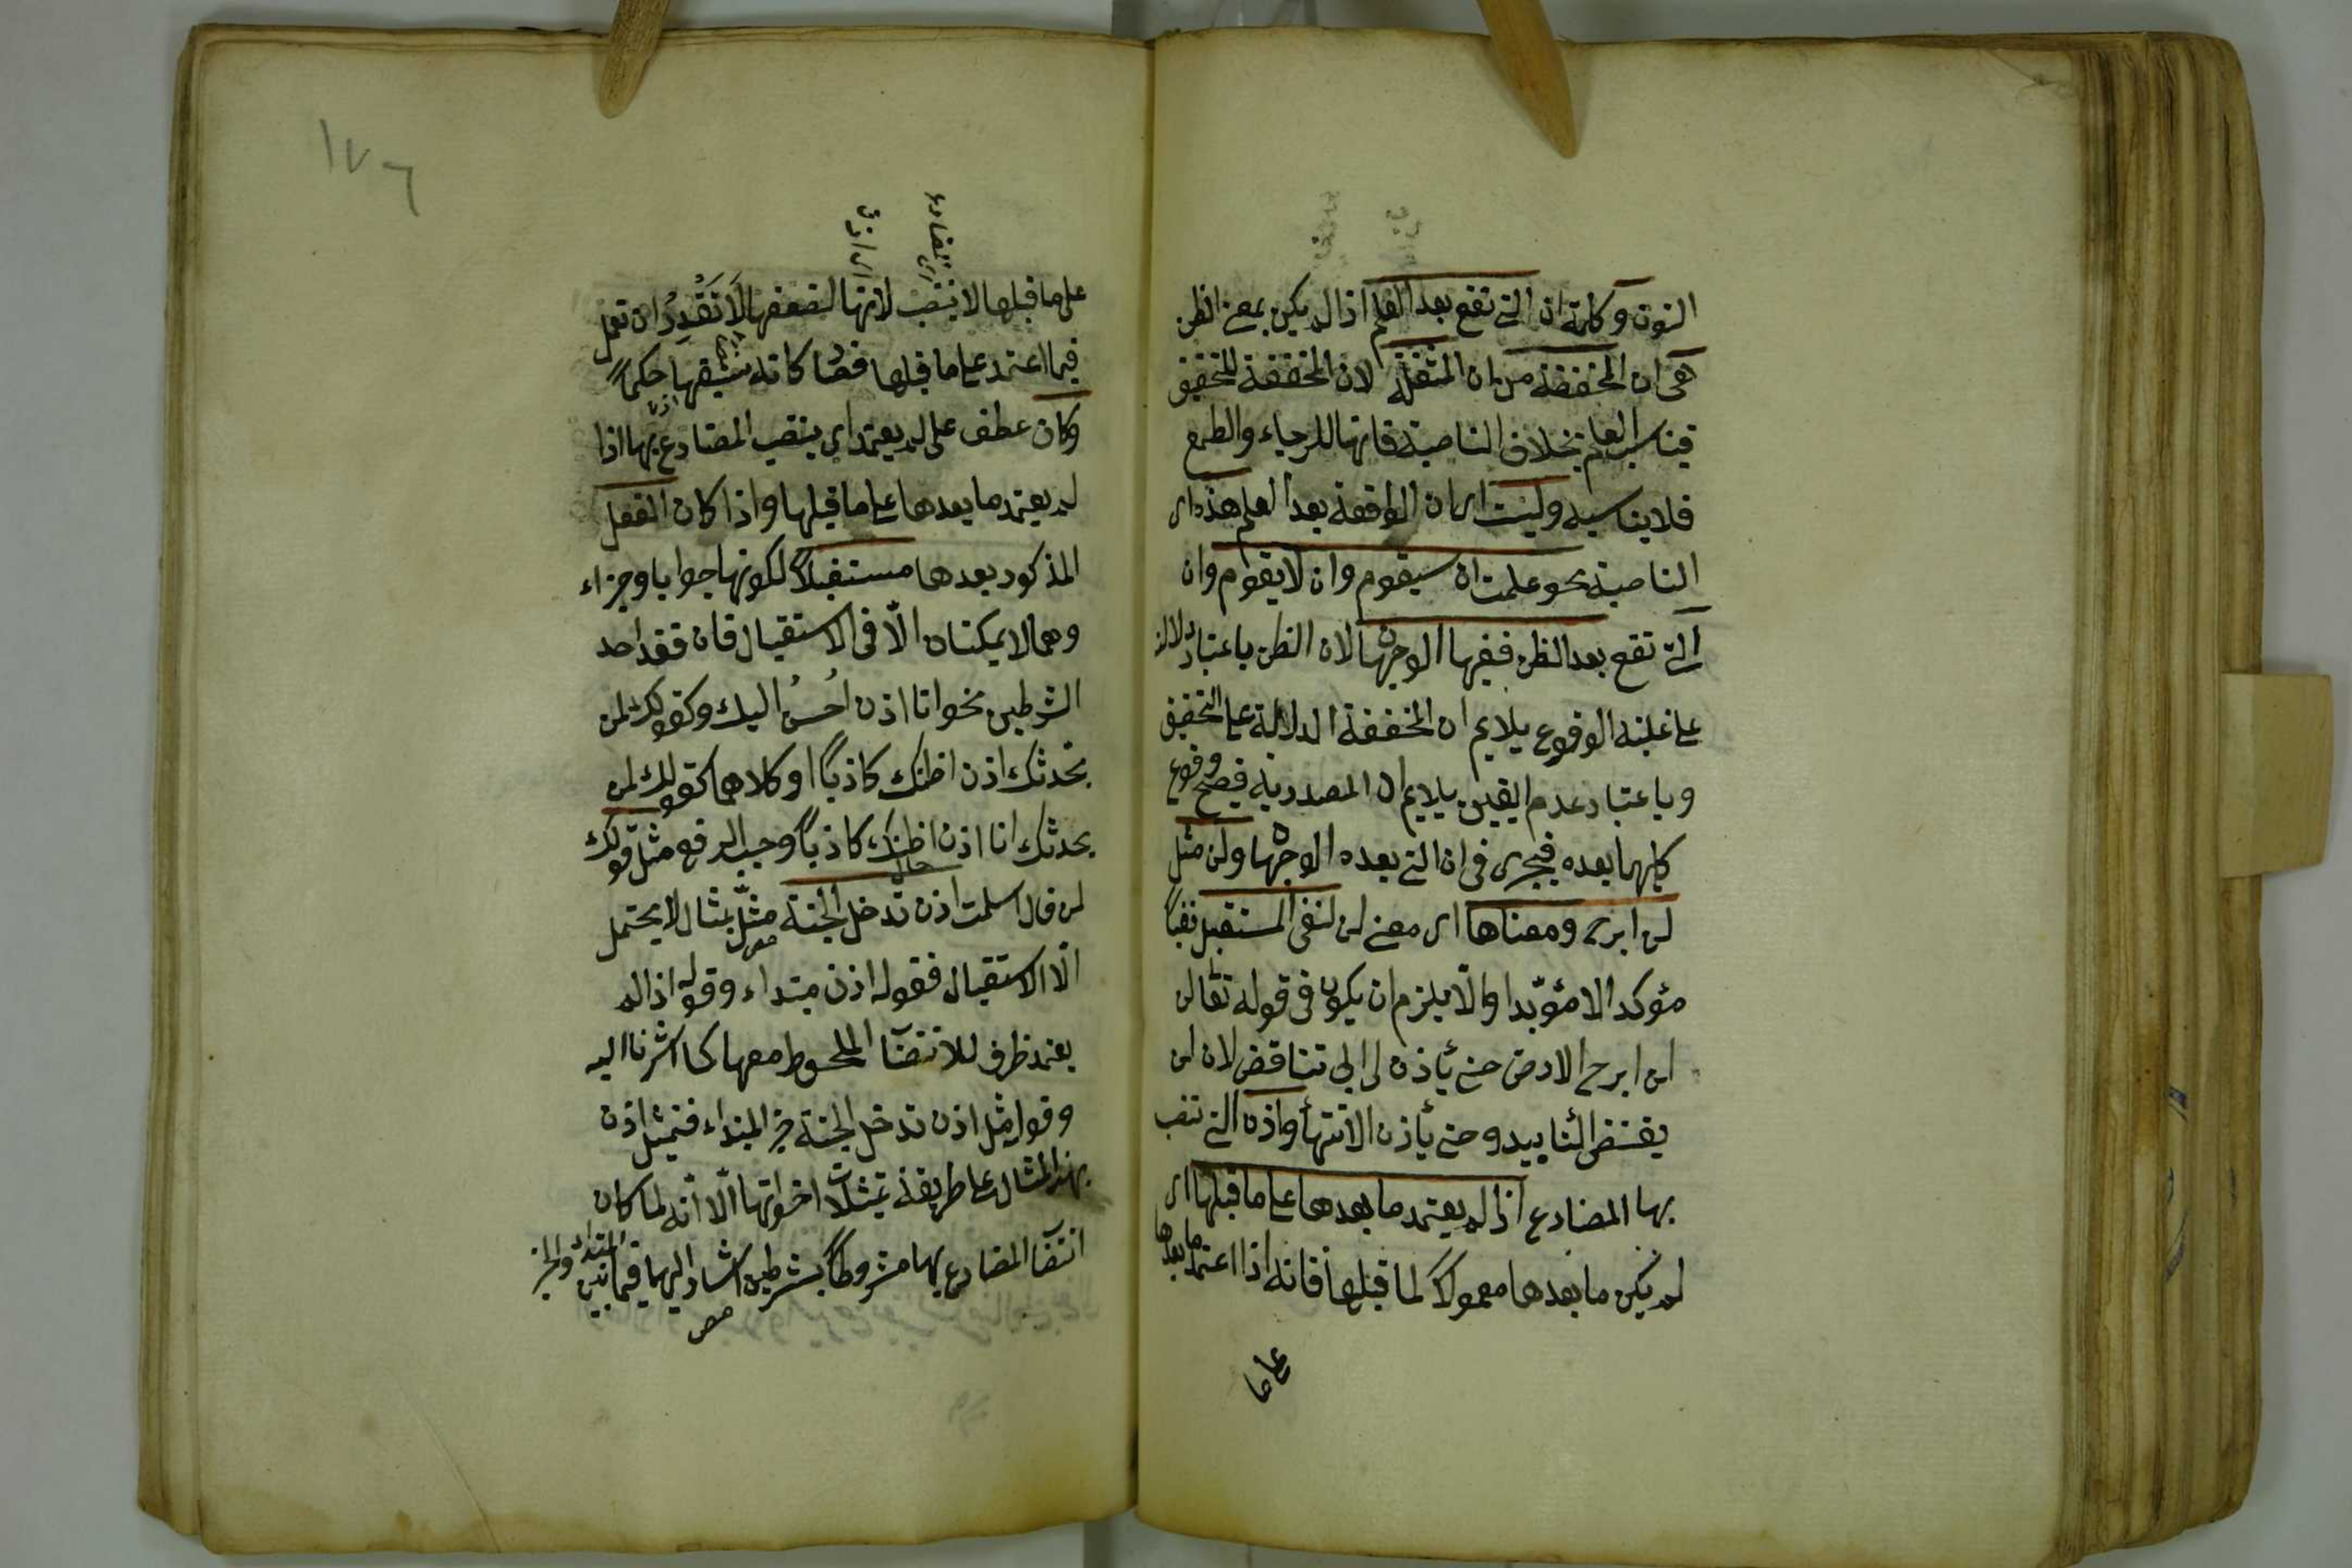 النون وكلمة ان التي تقع بعد العلم اذا لم يكن بمعنى الظن
هي ان المخففة من ان المثقلة لان المخففة للتحقيق
فيناسب العلم بخلاف الناصبة فانها للرجاء والطمع
فلا يناسبه وليست اى ان الواقعة بعد العلم هذه اى
الناصبة نحو علمت ان سيقوم وان لا يقوم وان
التي تقع بعد الظن ففيها الوجهان لان الظن باعتبار دلالته
على غلبة الوقوع يلايم ان المخففة الدلالة على التحقيق
وباعتبار عدم اليقين يلايم ان المصدرية فيصح وقوع
كليهما بعده فيجرى فى ان التي بعده الوجهان ولن مثل
لن ابرح ومعناها اى معنى لن لنفى المستقبل نفيا
مؤكدا لا مؤبدا والا يلزم ان يكون فى قوله تعالى
لن ابرح الارض حتى يأذن لى ابى تناقض لان لن
يقتضى التأييد وحتى يأذن الانتهاء واذن التي تنصب
بها المضارع اذا لم يعتمد ما بعدها على ما قبلها اى
لم يكن ما بعدها معمولا لما قبلها فانه اذا اعتمد ما بعدها
على ما
١٧٦
على ما قبلها لا ينتصب لانها لضعفها لا تقدر ان تعمل
فيما اعتمد على ما قبلها فصار كانه سبقها حكما
وكان عطف على لم يعتمد اى ينتصب المضارع بها اذا
لم يعتمد ما بعدها على ما قبلها واذا كان الفعل
المذكور بعدها مستقبلا لكونها جوابا وجزاء
وهما لا يمكنان الا فى الاستقبال فان فقد احد
الشرطين نحو انا اذن احسن اليك وكقولك لمن
يحدثك اذن اظنك كاذبا او كلاهما كقولك لمن
يحدثك انا اذن اظنك كاذبا وجب الرفع مثل قولك
لمن قال اسلمت اذن تدخل الجنة مثل بمثال لا يحتمل
الا الاستقبال فقوله اذن مبتداء وقوله اذا لم
يعتمد ظرف للانتصاب الملحوظ معها كما اشرنا اليه
وقوله مثل اذن تدخل الجنة خبر المبتداء فتمثيل اذن
بهذا المثال على طريقة تمثيلات اخواتها الا انه لما كان
انتصاب المضارع بها مشروطا بشرطين اشار اليهما فيما بين المبتداء والخبر